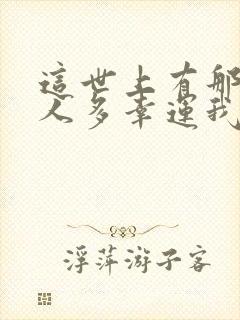 這世上有那
人多幸運我
浮萍游子客